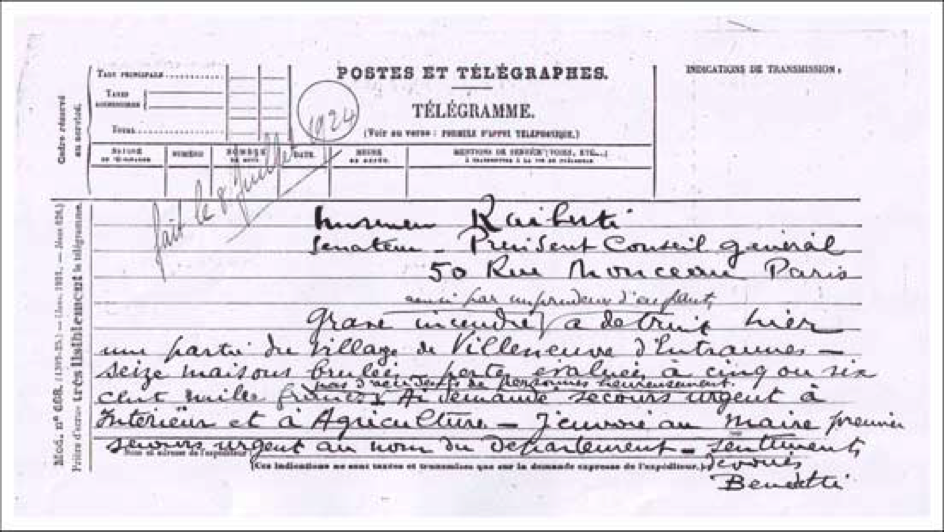 POSTES ET TÉLÉGRAPHES.
INDICATIONS DE TRANSMISSION :
TÉLÉGRAMME.
(Voir au verso : FORMULE D'APPEL TÉLÉPHONIQUE.)
Cadre réservé
au service.
TAXE PRINCIPALE
TAXES
ACCESSOIRES
TOTAL
NATURE
NUMÉRO
NOMBRE
DE MOTS
DATE
HEURE
DE DÉPÔT
MENTIONS DE SERVICE (VOIES, ETC...)
fait le 8 juillet 1924
Monsieur Raiberti
Senateur - President Conseil général
50 Rue Monceau Paris
par imprudence d'enfant
Grave incendie a detruit hier
une partie du village de Villeneuve d'Entraunes -
seize maisons brulées - perte evaluée à cinq ou six
pas d'accidents de personnes heureusement.
cent mille francs Ai demandé secours urgent à
Interieur et à Agriculture - J'envoie au Maire premier
secours urgent au nom du Departement - sentiments
devoués
Benedetti
Nom et adresse de l'expéditeur
(Ces indications ne sont taxées et transmises que sur la demande expresse de l'expéditeur.)
Mod. n° 698.
Prière d'écrire très lisiblement le télégramme.